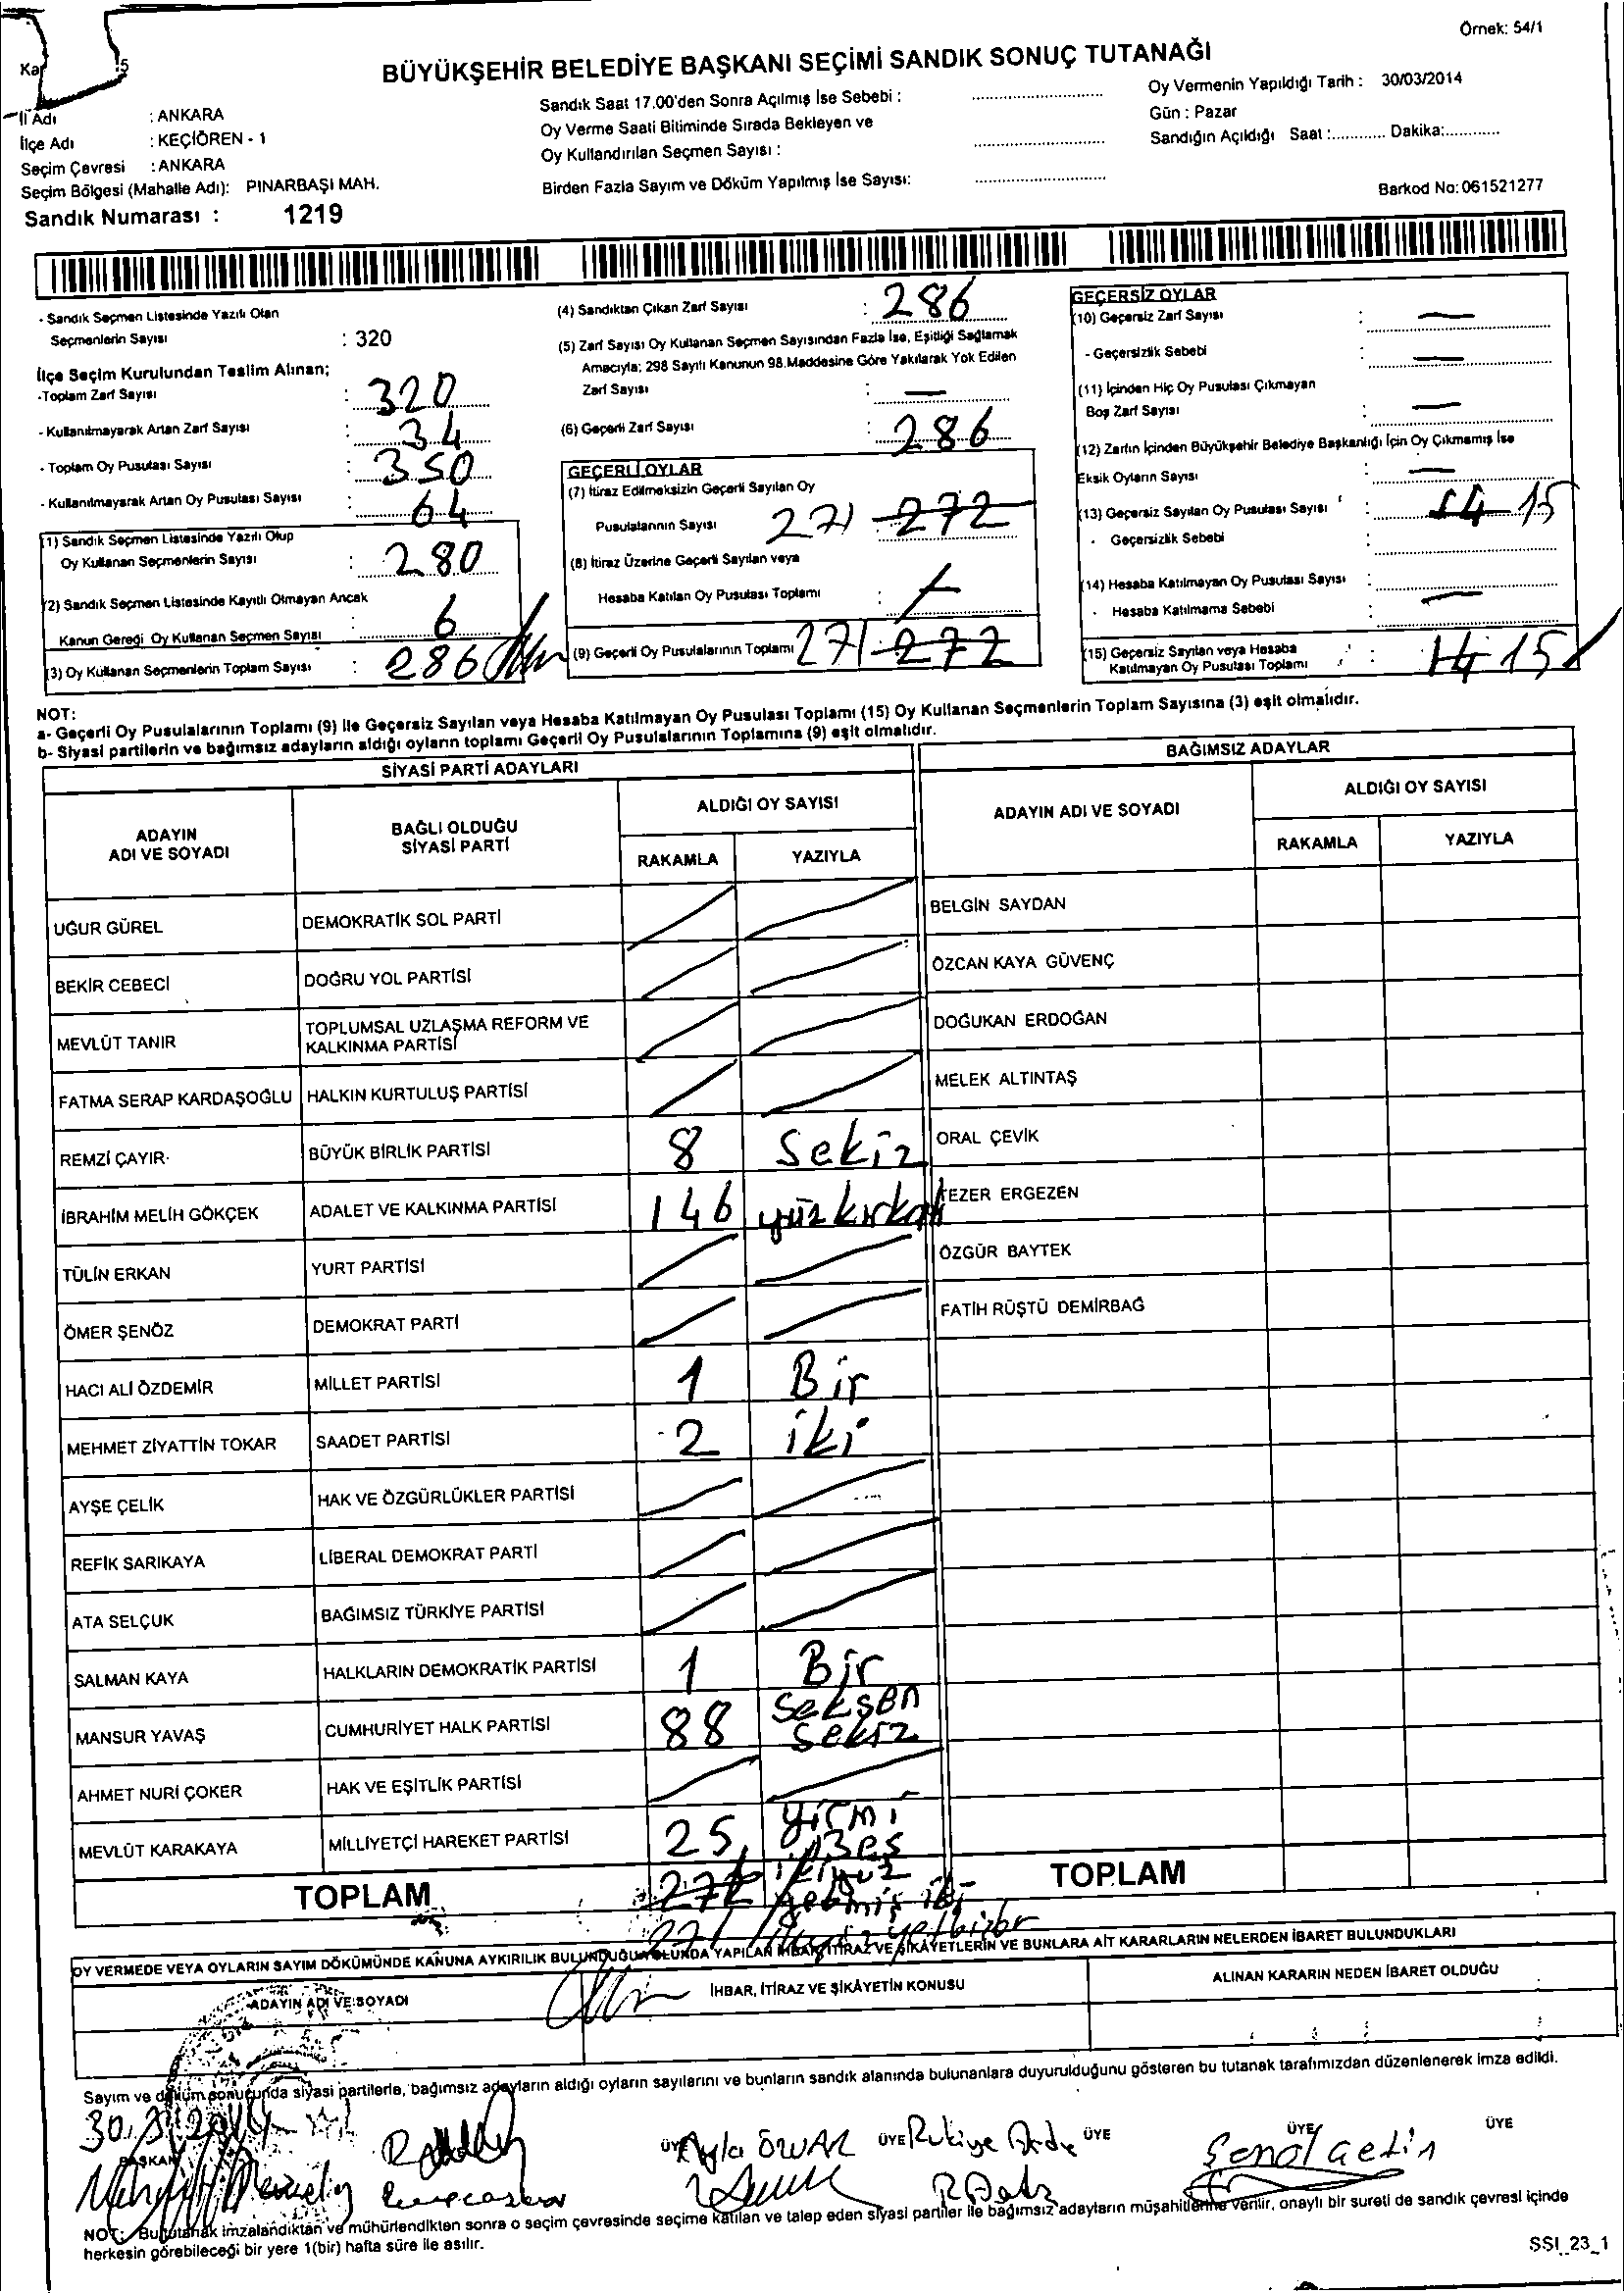 Örnek: 54/1
BÜYÜKŞEHİR BELEDİYE BAŞKANI SEÇİMİ SANDIK SONUÇ TUTANAĞI
İl Adı : ANKARA
İlçe Adı : KEÇİÖREN - 1
Seçim Çevresi : ANKARA
Seçim Bölgesi (Mahalle Adı): PINARBAŞI MAH.
Sandık Numarası : 1219
Sandık Saat 17.00'den Sonra Açılmış İse Sebebi :
Oy Verme Saati Bitiminde Sırada Bekleyen ve
Oy Kullandırılan Seçmen Sayısı :
Birden Fazla Sayım ve Döküm Yapılmış İse Sayısı:
Oy Vermenin Yapıldığı Tarih : 30/03/2014
Gün : Pazar
Sandığın Açıldığı Saat :............ Dakika:............
Barkod No: 061521277
- Sandık Seçmen Listesinde Yazılı Olan
Seçmenlerin Sayısı : 320
İlçe Seçim Kurulundan Teslim Alınan;
-Toplam Zarf Sayısı : 320
- Kullanılmayarak Artan Zarf Sayısı : 34
- Toplam Oy Pusulası Sayısı : 350
- Kullanılmayarak Artan Oy Pusulası Sayısı : 64
(1) Sandık Seçmen Listesinde Yazılı Olup
Oy Kullanan Seçmenlerin Sayısı : 280
(2) Sandık Seçmen Listesinde Kayıtlı Olmayan Ancak
Kanun Gereği Oy Kullanan Seçmen Sayısı : 6
(3) Oy Kullanan Seçmenlerin Toplam Sayısı : 286
(4) Sandıktan Çıkan Zarf Sayısı : 286
(5) Zarf Sayısı Oy Kullanan Seçmen Sayısından Fazla İse, Eşitliği Sağlamak
Amacıyla; 298 Sayılı Kanunun 98.Maddesine Göre Yakılarak Yok Edilen
Zarf Sayısı : —
(6) Geçerli Zarf Sayısı : 286
GEÇERLİ OYLAR
(7) İtiraz Edilmeksizin Geçerli Sayılan Oy
Pusulalarının Sayısı 271 272
(8) İtiraz Üzerine Geçerli Sayılan veya
Hesaba Katılan Oy Pusulası Toplamı :
(9) Geçerli Oy Pusulalarının Toplamı 271 272
GEÇERSİZ OYLAR
(10) Geçersiz Zarf Sayısı : —
- Geçersizlik Sebebi : —
(11) İçinden Hiç Oy Pusulası Çıkmayan
Boş Zarf Sayısı : —
(12) Zarfın İçinden Büyükşehir Belediye Başkanlığı İçin Oy Çıkmamış İse
Eksik Oyların Sayısı : —
(13) Geçersiz Sayılan Oy Pusulası Sayısı : 14 15
- Geçersizlik Sebebi :
(14) Hesaba Katılmayan Oy Pusulası Sayısı :
- Hesaba Katılmama Sebebi : —
(15) Geçersiz Sayılan veya Hesaba
Katılmayan Oy Pusulası Toplamı : 14 15
NOT:
a- Geçerli Oy Pusulalarının Toplamı (9) ile Geçersiz Sayılan veya Hesaba Katılmayan Oy Pusulası Toplamı (15) Oy Kullanan Seçmenlerin Toplam Sayısına (3) eşit olmalıdır.
b- Siyasi partilerin ve bağımsız adayların aldığı oyların toplamı Geçerli Oy Pusulalarının Toplamına (9) eşit olmalıdır.
SİYASİ PARTİ ADAYLARI
ADAYIN
ADI VE SOYADI
BAĞLI OLDUĞU
SİYASİ PARTİ
ALDIĞI OY SAYISI
RAKAMLA YAZIYLA
UĞUR GÜREL DEMOKRATİK SOL PARTİ
BEKİR CEBECİ DOĞRU YOL PARTİSİ
MEVLÜT TANIR TOPLUMSAL UZLAŞMA REFORM VE
KALKINMA PARTİSİ
FATMA SERAP KARDAŞOĞLU HALKIN KURTULUŞ PARTİSİ
REMZİ ÇAYIR BÜYÜK BİRLİK PARTİSİ 8 Sekiz
İBRAHİM MELİH GÖKÇEK ADALET VE KALKINMA PARTİSİ 146 yüzkırkaltı
TÜLİN ERKAN YURT PARTİSİ
ÖMER ŞENÖZ DEMOKRAT PARTİ
HACI ALİ ÖZDEMİR MİLLET PARTİSİ 1 Bir
MEHMET ZİYATTİN TOKAR SAADET PARTİSİ 2 iki
AYŞE ÇELİK HAK VE ÖZGÜRLÜKLER PARTİSİ
REFİK SARIKAYA LİBERAL DEMOKRAT PARTİ
ATA SELÇUK BAĞIMSIZ TÜRKİYE PARTİSİ
SALMAN KAYA HALKLARIN DEMOKRATİK PARTİSİ 1 Bir
MANSUR YAVAŞ CUMHURİYET HALK PARTİSİ 88 Seksen
Sekiz
AHMET NURİ ÇOKER HAK VE EŞİTLİK PARTİSİ
MEVLÜT KARAKAYA MİLLİYETÇİ HAREKET PARTİSİ 25 Yirmi
Beş
TOPLAM 272 ikiyüz
yetmiş iki
271 ikiyüzyetmişbir
BAĞIMSIZ ADAYLAR
ADAYIN ADI VE SOYADI
ALDIĞI OY SAYISI
RAKAMLA YAZIYLA
BELGİN SAYDAN
ÖZCAN KAYA GÜVENÇ
DOĞUKAN ERDOĞAN
MELEK ALTINTAŞ
ORAL ÇEVİK
TEZER ERGEZEN
ÖZGÜR BAYTEK
FATİH RÜŞTÜ DEMİRBAĞ
TOPLAM
OY VERMEDE VEYA OYLARIN SAYIM DÖKÜMÜNDE KANUNA AYKIRILIK BULUNDUĞU YOLUNDA YAPILAN İHBAR, İTİRAZ VE ŞİKÂYETLERİN VE BUNLARA AİT KARARLARIN NELERDEN İBARET BULUNDUKLARI
ADAYIN ADI VE SOYADI
İHBAR, İTİRAZ VE ŞİKÂYETİN KONUSU
ALINAN KARARIN NEDEN İBARET OLDUĞU
Sayım ve döküm sonucunda siyasi partilerle, bağımsız adayların aldığı oyların sayılarını ve bunların sandık alanında bulunanlara duyurulduğunu gösteren bu tutanak tarafımızdan düzenlenerek imza edildi.
30/3/2014
BAŞKAN
ÜYE Ayla ÖZÜAK ÜYE Rukiye ÜYE ÜYE Şenol Çetin ÜYE
NOT: Bu tutanak imzalandıktan ve mühürlendikten sonra o seçim çevresinde seçime katılan ve talep eden siyasi partiler ile bağımsız adayların müşahitlerine verilir, onaylı bir sureti de sandık çevresi içinde
herkesin görebileceği bir yere 1(bir) hafta süre ile asılır.
SSI_23_1